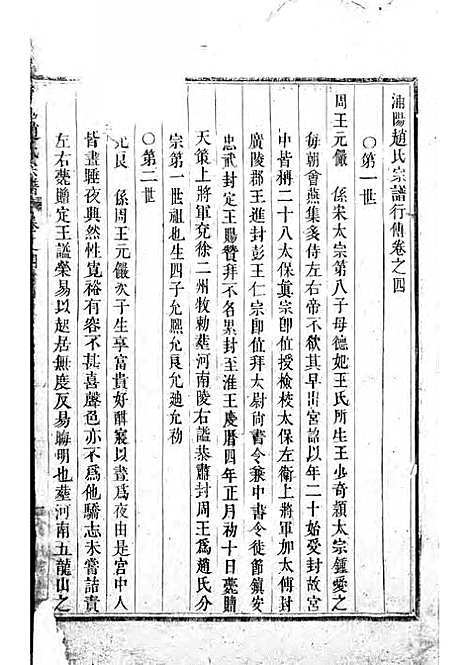 浦陽趙氏宗譜行傳卷之四
○第一世
周王元儼 係宋太宗第八子母德妃王氏所生王少奇穎太宗鍾愛之
每朝會燕集多侍左右帝不欲其早出宮詔以年二十始受封故宮
中皆稱二十八太保眞宗卽位授檢校太保左衛上將軍加太傅封
廣陵郡王進封彭王仁宗卽位拜太尉尚書令兼中書令徙節鎮安
忠武封定王賜贊拜不名累封至淮王慶曆四年正月初十日薨贈
天策上將軍兗徐二州牧勅塟河南陵右諡恭肅封周王爲趙氏分
宗第一世祖也生四子允熈允良允迪允初
○第二世
允良 係周王元儼次子生享富貴好酣寢以晝爲夜由是宮中人
皆晝睡夜興然性寬裕有容不甚喜聲色亦不爲他驕志未嘗詰責
左右薨贈定王諡榮易以起居無度反易晦明也塟河南五龍山之